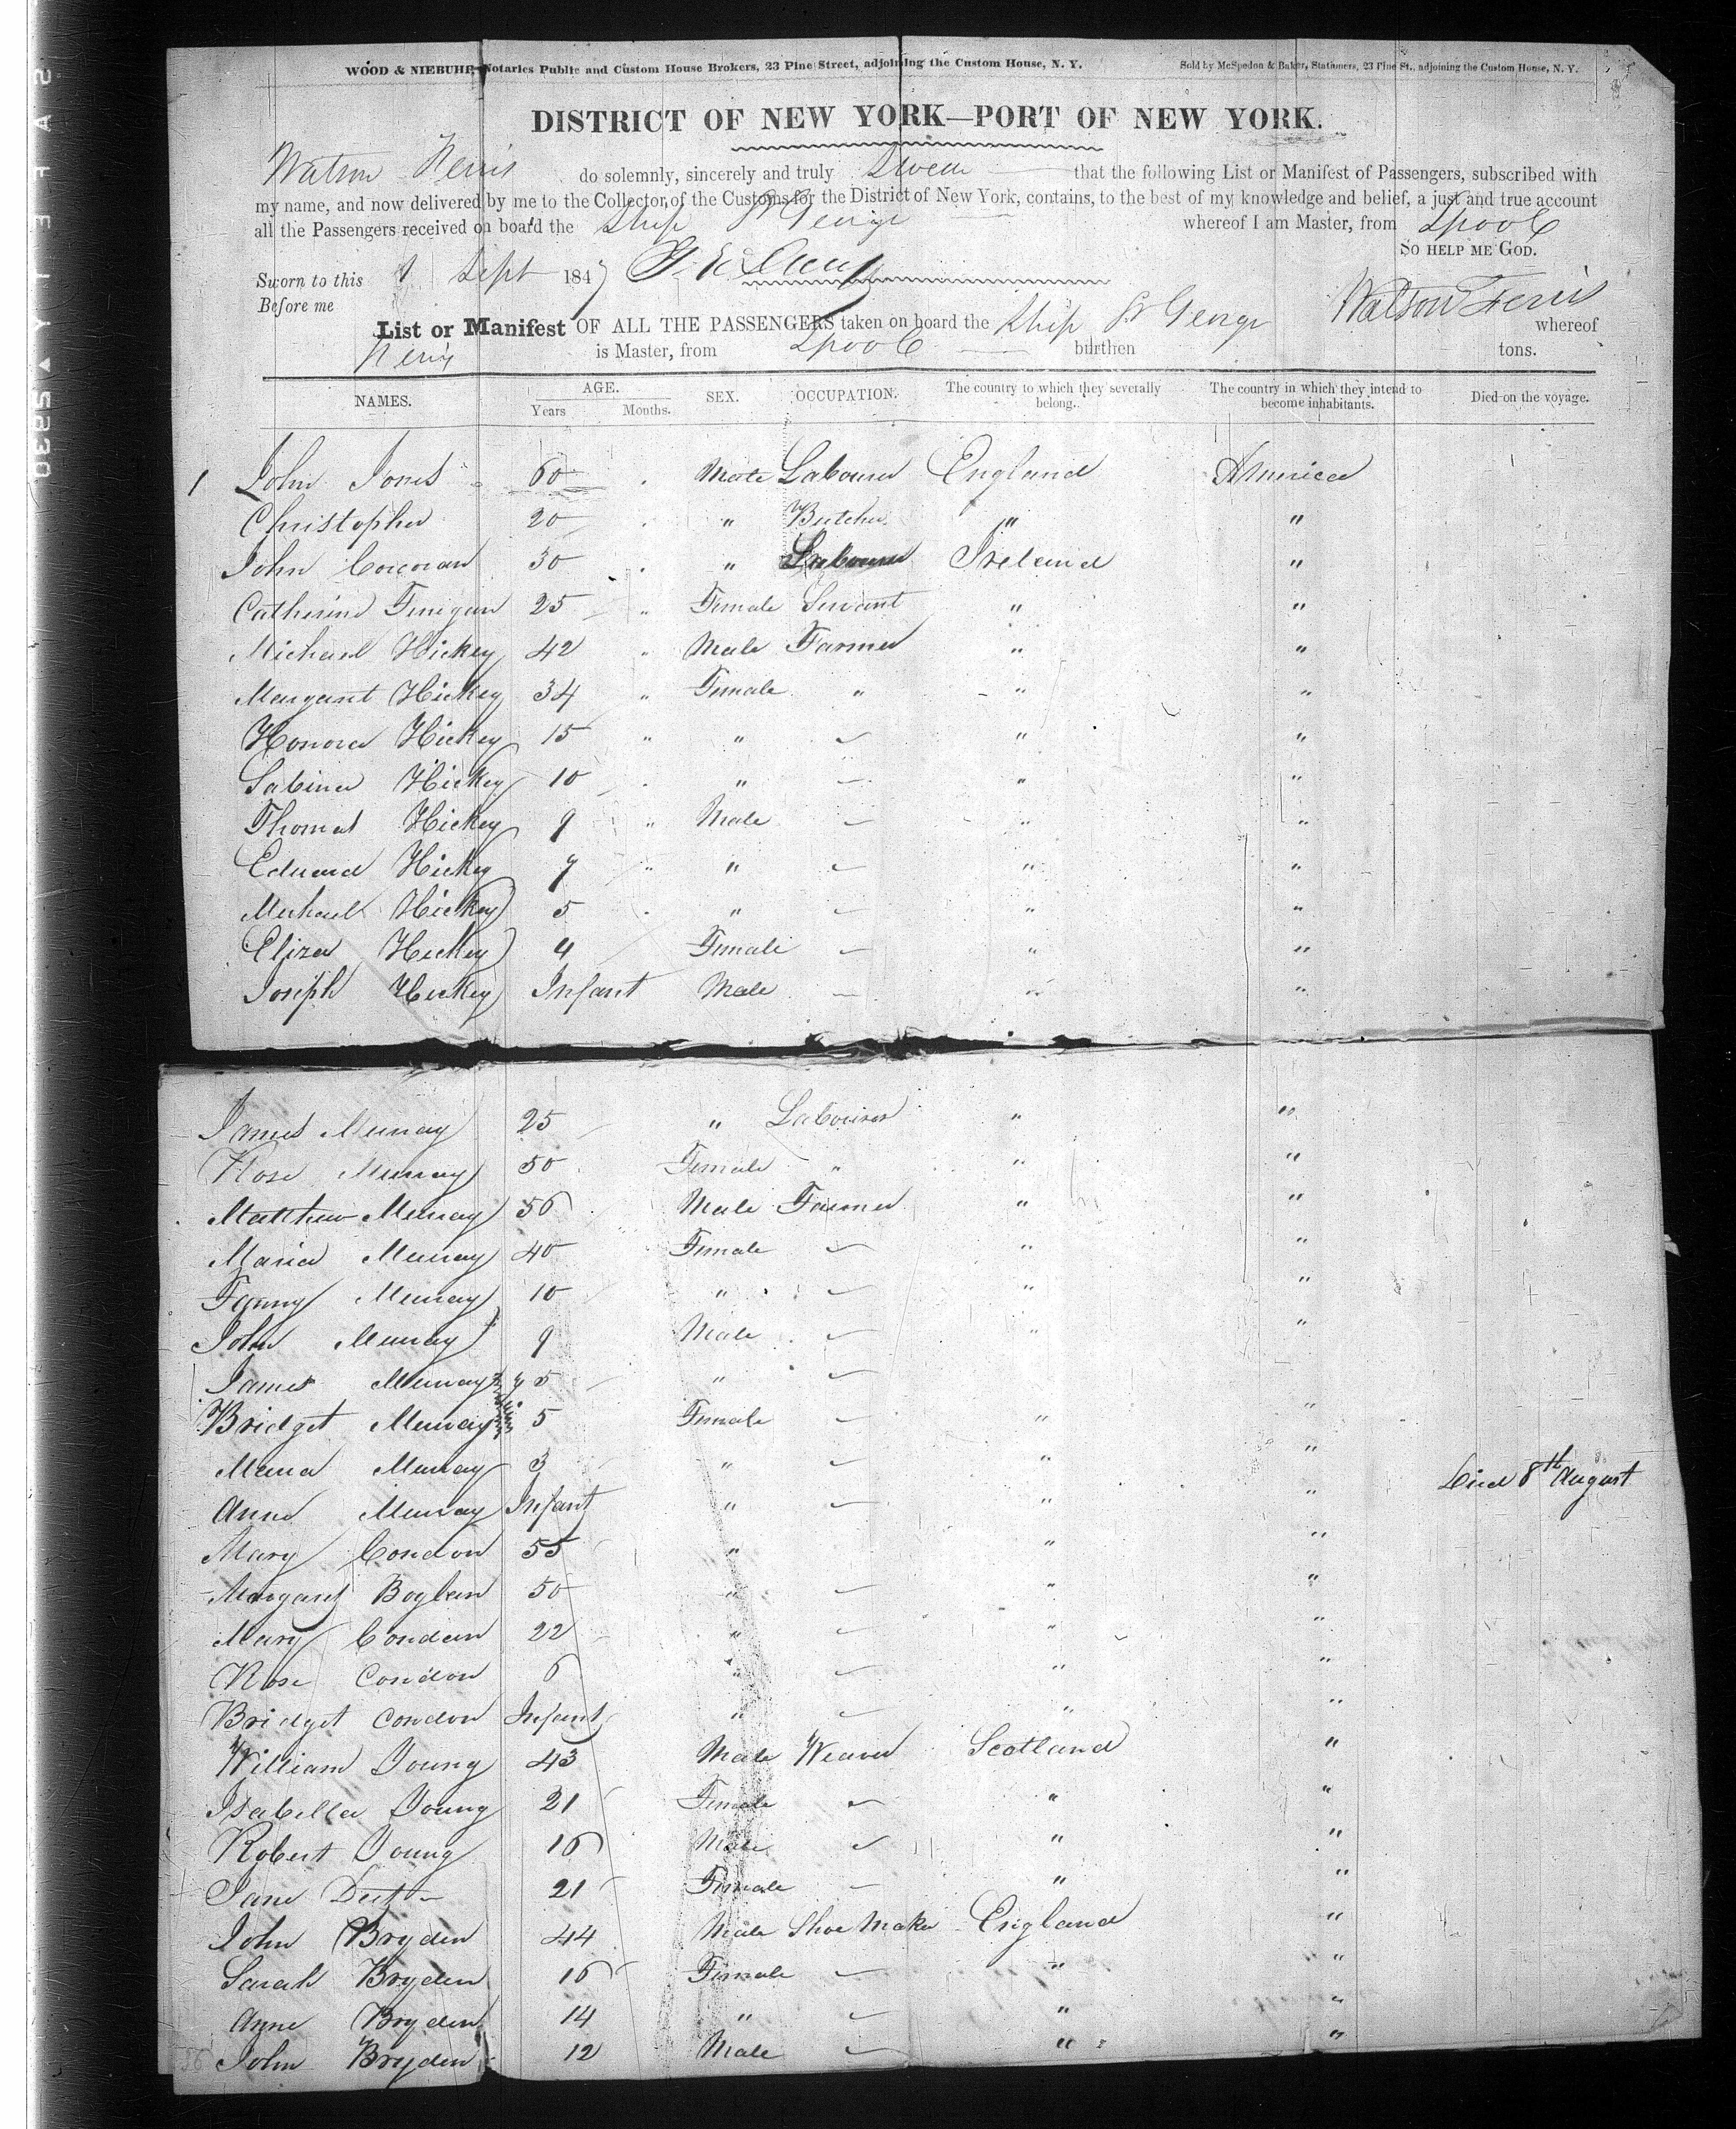 WOOD & NIEBUHR, Notaries Public and Custom House Brokers, 23 Pine Street, adjoining the Custom House, N. Y. Sold by McSpedon & Baker, Stationers, 23 Pine St., adjoining the Custom House, N. Y.
DISTRICT OF NEW YORK—PORT OF NEW YORK.
Watson Ferris do solemnly, sincerely and truly Swear that the following List or Manifest of Passengers, subscribed with
my name, and now delivered by me to the Collector of the Customs for the District of New York, contains, to the best of my knowledge and belief, a just and true account
all the Passengers received on board the Ship St George whereof I am Master, from Lpool
SO HELP ME GOD.
Sworn to this 1 Sept 1847
Before me Watson Ferris
List or Manifest OF ALL THE PASSENGERS taken on board the Ship St George whereof
Ferris is Master, from Lpool burthen tons.
NAMES. AGE. Years Months. SEX. OCCUPATION. The country to which they severally belong. The country in which they intend to become inhabitants. Died on the voyage.
1 John Jones 60 Male Labourer England America
Christopher 20 " Butcher " "
John Corcoran 30 " Labourer Ireland "
Catherine Finigan 25 " Female Servant " "
Michael Hickey 42 " Male Farmer " "
Margaret Hickey 34 " Female " " "
Honora Hickey 15 " " " "
Sabina Hickey 10 " " "
Thomas Hickey 9 " Male " "
Edward Hickey 7 " " " "
Michael Hickey 5 " " "
Eliza Hickey 4 Female " "
Joseph Hickey Infant Male " "
James Murray 25 " Labourer " "
Rose Murray 50 Female " " "
Matthew Murray 56 Male Farmer " "
Maria Murray 40 Female " "
Fanny Murray 10 " " "
John Murray 9 Male " "
James Murray 7 5 "
Bridget Murray 5 Female " "
Maria Murray 3 " " "
Anne Murray Infant " " " Died 8th August
Mary Condon 55 " " "
Margaret Boylan 50 " " "
Mary Condon 22 " " "
Rose Condon 6 " " "
Bridget Condon Infant " " "
William Young 43 Male Weaver Scotland "
Isabella Young 21 Female " "
Robert Young 16 Male " "
Jane 21 Female " "
John Bryden 44 Male Shoe Maker England "
Sarah Bryden 16 Female " "
Anne Bryden 14 " " "
36 John Bryden 12 Male " "